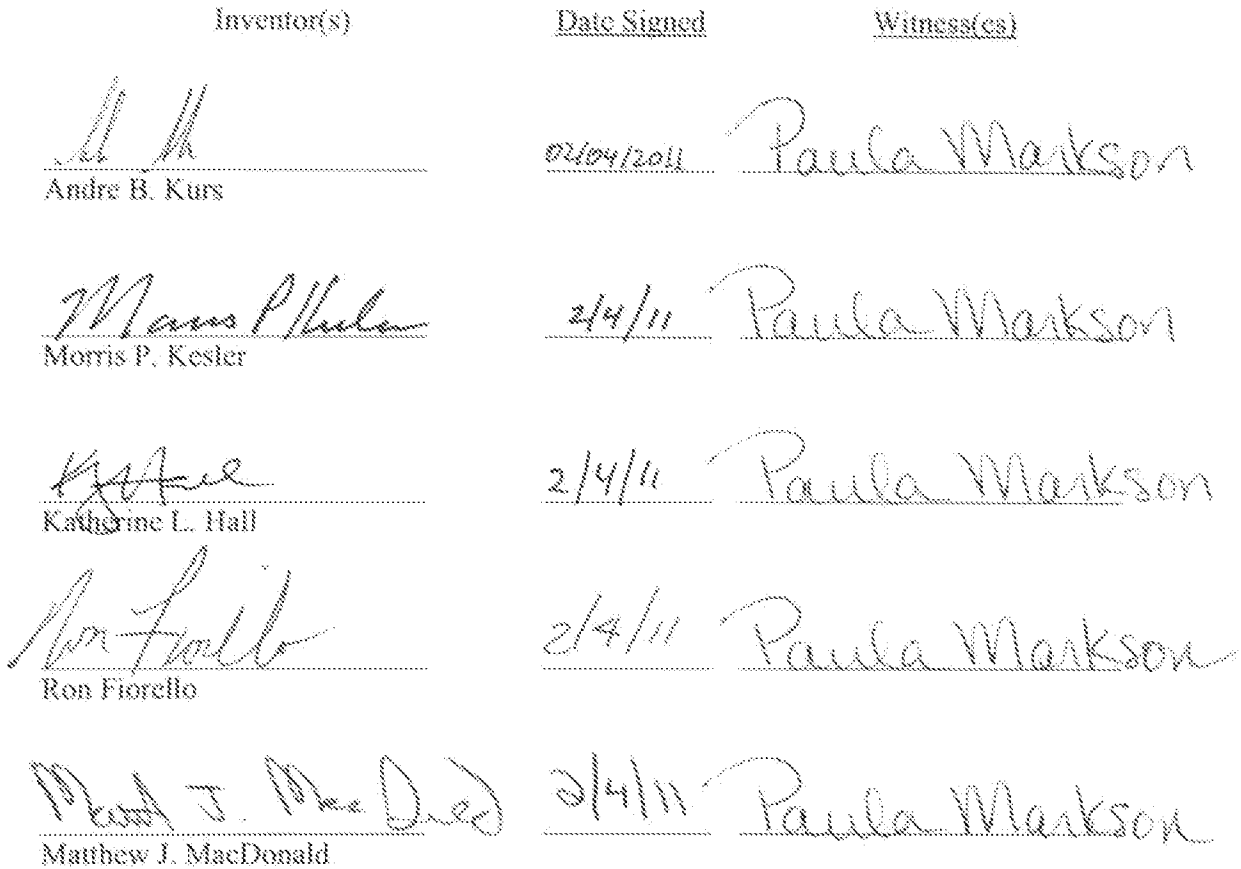 Inventor(s) Date Signed Witness(es)
02/04/2011 Paula Markson
Andre B. Kurs
Morris P Kesler 2/4/11 Paula Markson
Morris P. Kesler
2/4/11 Paula Markson
Katherine L. Hall
Ron Fiorello 2/4/11 Paula Markson
Ron Fiorello
Matthew J. MacDonald 2/4/11 Paula Markson
Matthew J. MacDonald